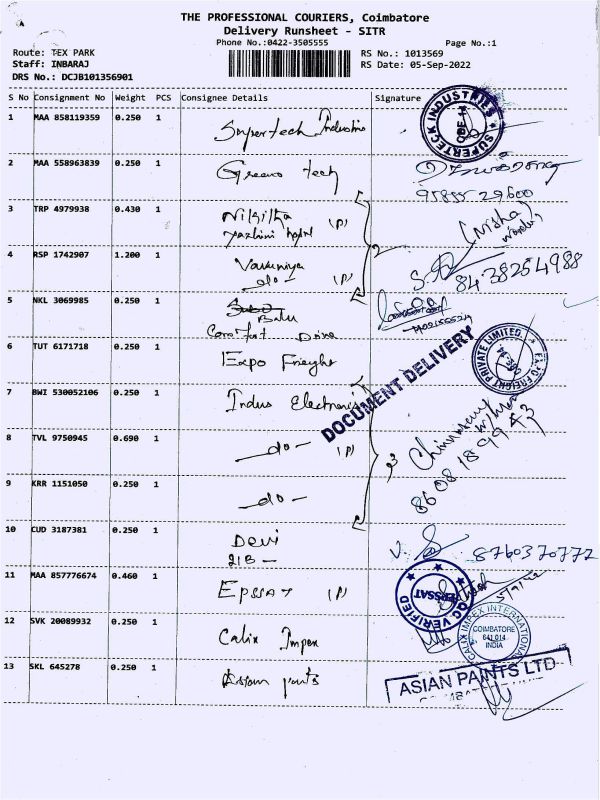 THE PROFESSIONAL COURIERS, Coimbatore
Delivery Runsheet - SITR
Phone No.:0422-3505555
Page No.:1
Route: TEX PARK
RS No.: 1013569
Staff: INBARAJ
RS Date: 05-Sep-2022
DRS No.: DCJB101356901
S No Consignment No Weight PCS Consignee Details Signature
1 MAA 858119359 0.250 1 Supertech Industries
SUPERTECK INDUSTRIES
2 MAA 558963839 0.250 1 Greens tech
95855 29600
3 TRP 4979938 0.430 1 (P)
4 RSP 1742907 1.200 1 -do- (P)
84 38254988
5 NKL 3069985 0.250 1 Balu
Comfort
DOCUMENT DELIVERY
6 TUT 6171718 0.250 1 Expo Frieght
EXPO FREIGHT PRIVATE LIMITED
7 BWI 530052106 0.250 1 Indus Electronis
8 TVL 9750945 0.690 1 -do- (P)
9 KRR 1151050 0.250 1 -do-
10 CUD 3187381 0.250 1 Devi
21B -
8760370772
11 MAA 857776674 0.460 1 EPSSAT (P)
EPSSAT
QC VERIFIED
12 SVK 20089932 0.250 1 Calix Impex
CALIX IMPEX INTERNATIONAL
COIMBATORE
641 014
INDIA
13 SKL 645278 0.250 1 Asian paints
ASIAN PAINTS LTD